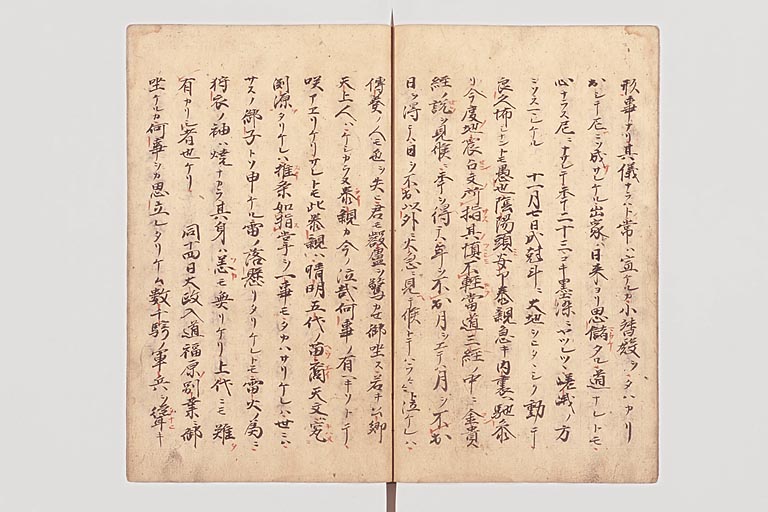 形事ナリ其儀ナラハト常ハ宣ケルカ小督殿ヲタハカリ
出シテ尼ニ成サレケル出家ハ日来ヨリ思儲タル道ナレトモ
心ナラス尼ニナサレテ年二十三コキ墨染ニヤツレツヽ嵯峨ノ方
ニソスミケル　十一月七日戌刻計ニ大地ヲヒタヽシク動テ
良久怖シナントモ愚也陰陽頭安部泰親急キ内裏ヘ馳参
リ今度地震占文所指其慎不軽當道三経ノ中ニ金貴
経ノ説ヲ見候ニ年ヲ得テハ年ヲ不出月ヲエテハ月ヲ不出
日ヲ得テハ日ヲ不出以外ニ火急ニ見テ候トテハラヽヽト泣ケレハ
傳奏ノ人モ色ヲ失ヒ君モ叡慮ヲ驚カセ御坐ス若キ公卿
天上人ハケシカラス泰親カ今ノ泣哉何事ノ有ヘキソトテ
咲アエリケリサレトモ此泰親ハ晴明五代ノ苗裔天文ハ究
淵源タリケレハ推条如指掌シ一事モタカハサリケレハ世ニハ
サスノ御子トソ申ケル雷ノ落懸リタリケレトモ雷火ノ為ニ
狩衣ノ袖ハ焼ナカラ其身ハ恙モ無リケリ上代ニモ難
有カリシ者也ケリ　同十四日太政入道福原別業ニ御
坐ケルカ何事ヲカ思立レタリケム数千騎ノ軍兵ヲ聳キ